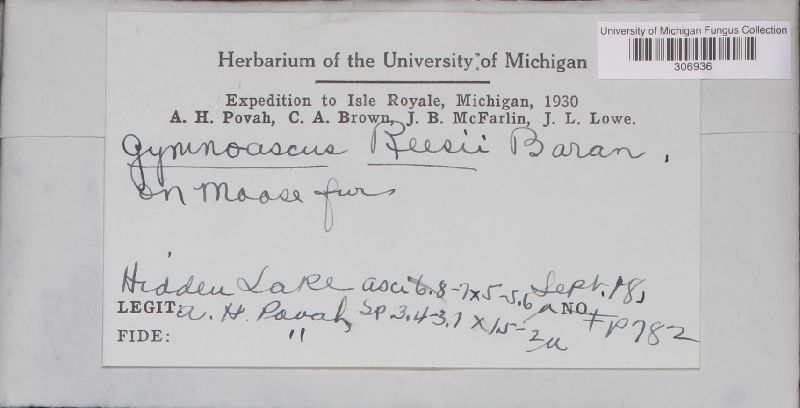 University of Michigan Fungus Collection
306936
Herbarium of the University of Michigan
Expedition to Isle Royale, Michigan, 1930
A. H. Povah, C. A. Brown, J. B. McFarlin, J. L. Lowe.
Gymnoascus Reesii Baran.
on moose fur
Hidden Lake asci 6.8-7x5-5.6 µ Sept. 18,
LEGIT: A. H. Povah, Sp 3.4-3.7 x 1.5-2µ NO. FP782
FIDE: "